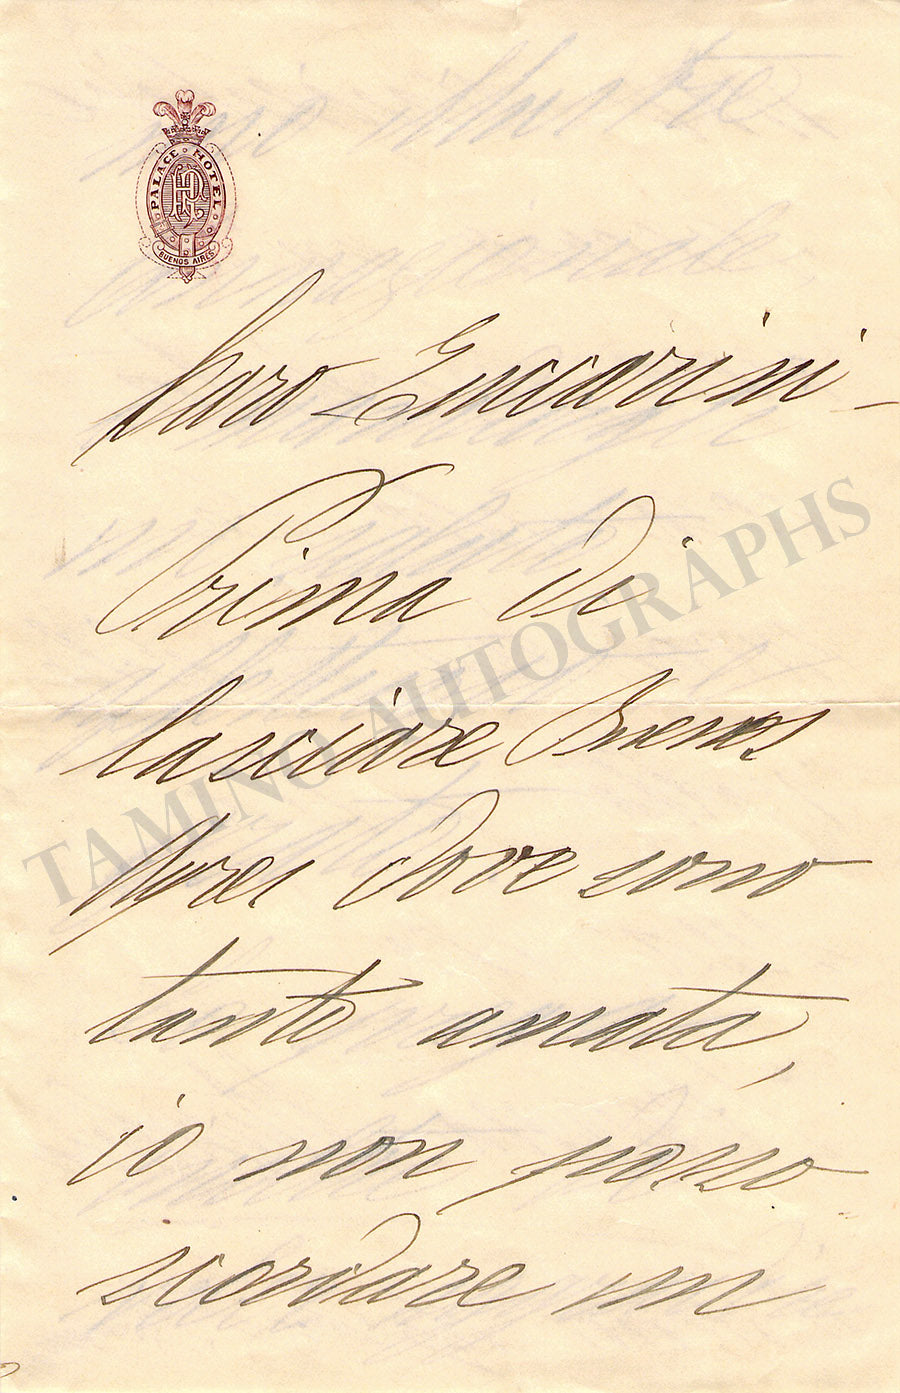 PALACE HOTEL
BUENOS AIRES
Caro Zuccarini -
Prima di
lasciare Buenos
Ayres dove sono
tanto amata,
io non posso
scordare un
TAMINO AUTOGRAPHS